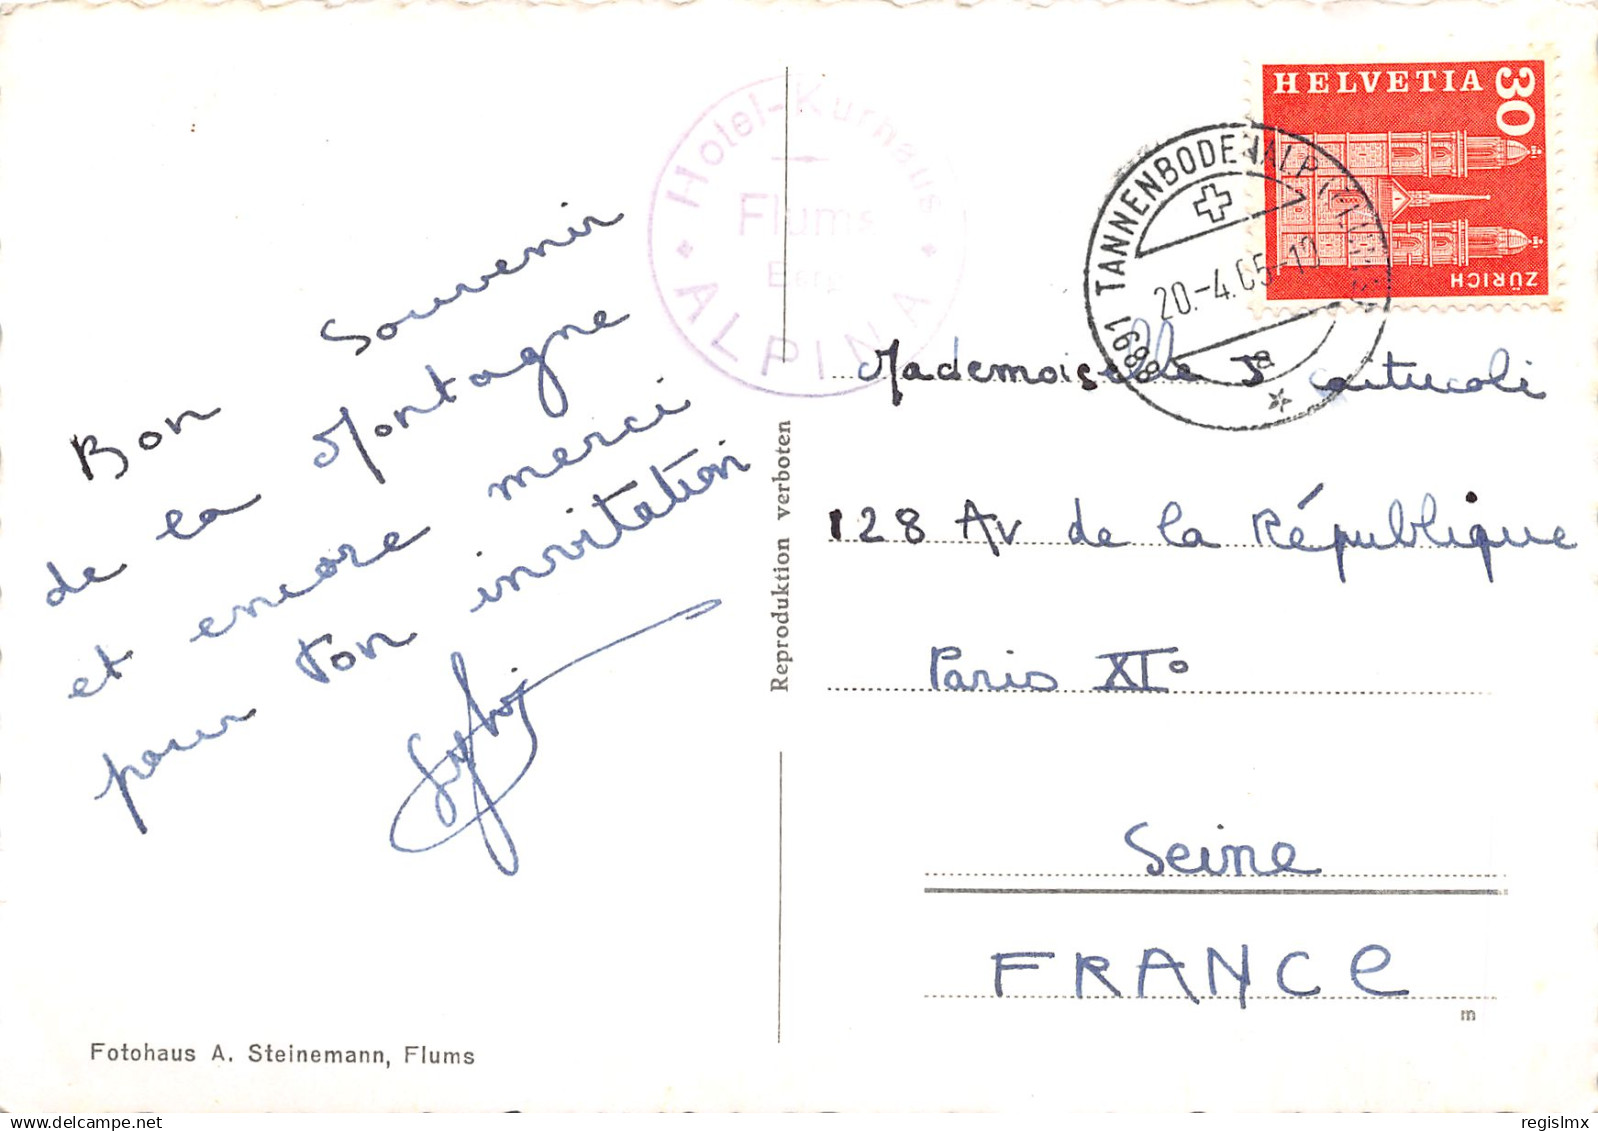 Bon Souvenir
de la Montagne
et encore merci
pour ton invitation
Fotohaus A. Steinemann, Flums
Reproduktion verboten
Hotel-Kurhaus
Flums
Berg
ALPINA
HELVETIA 30
ZÜRICH
8891 TANNENBODENALP (FLUMS)
20.-4.65-10
a
Mademoiselle J.
128 Av de la République
Paris XI°
Seine
FRANCE
m
regislmx